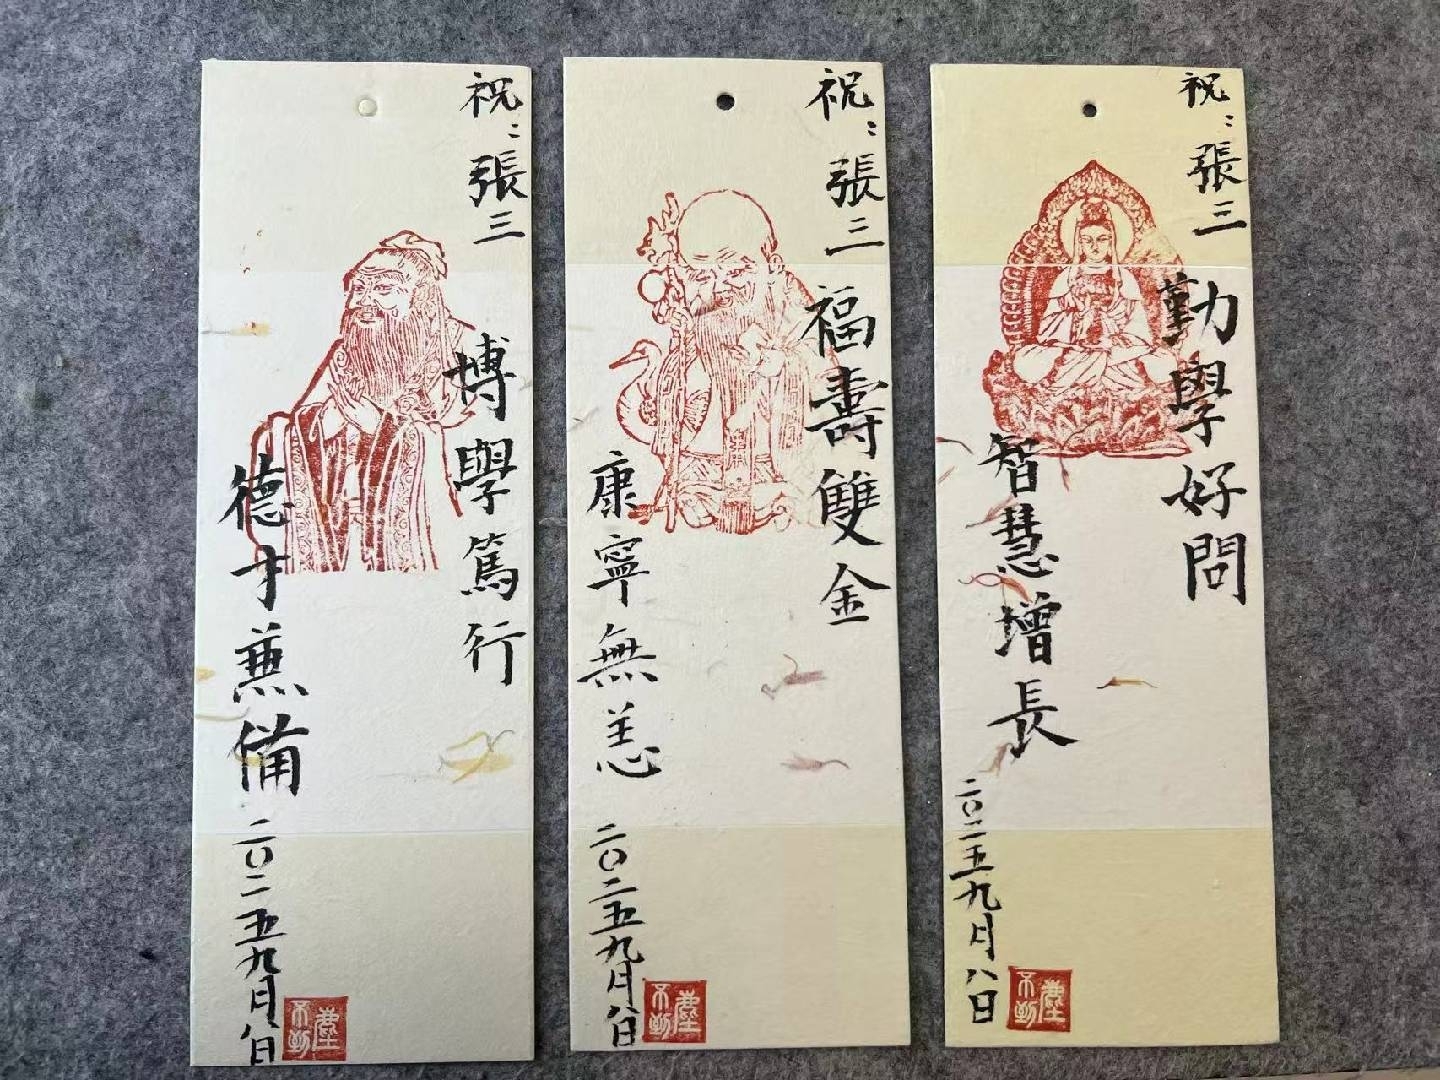 祝：張三
博學篤行
德才兼備
二〇二五九月八日
塵不到
祝：張三
福壽雙金
康寧無恙
二〇二五九月八日
塵不到
祝：張三
勤學好問
智慧增長
二〇二五九月八日
塵不到